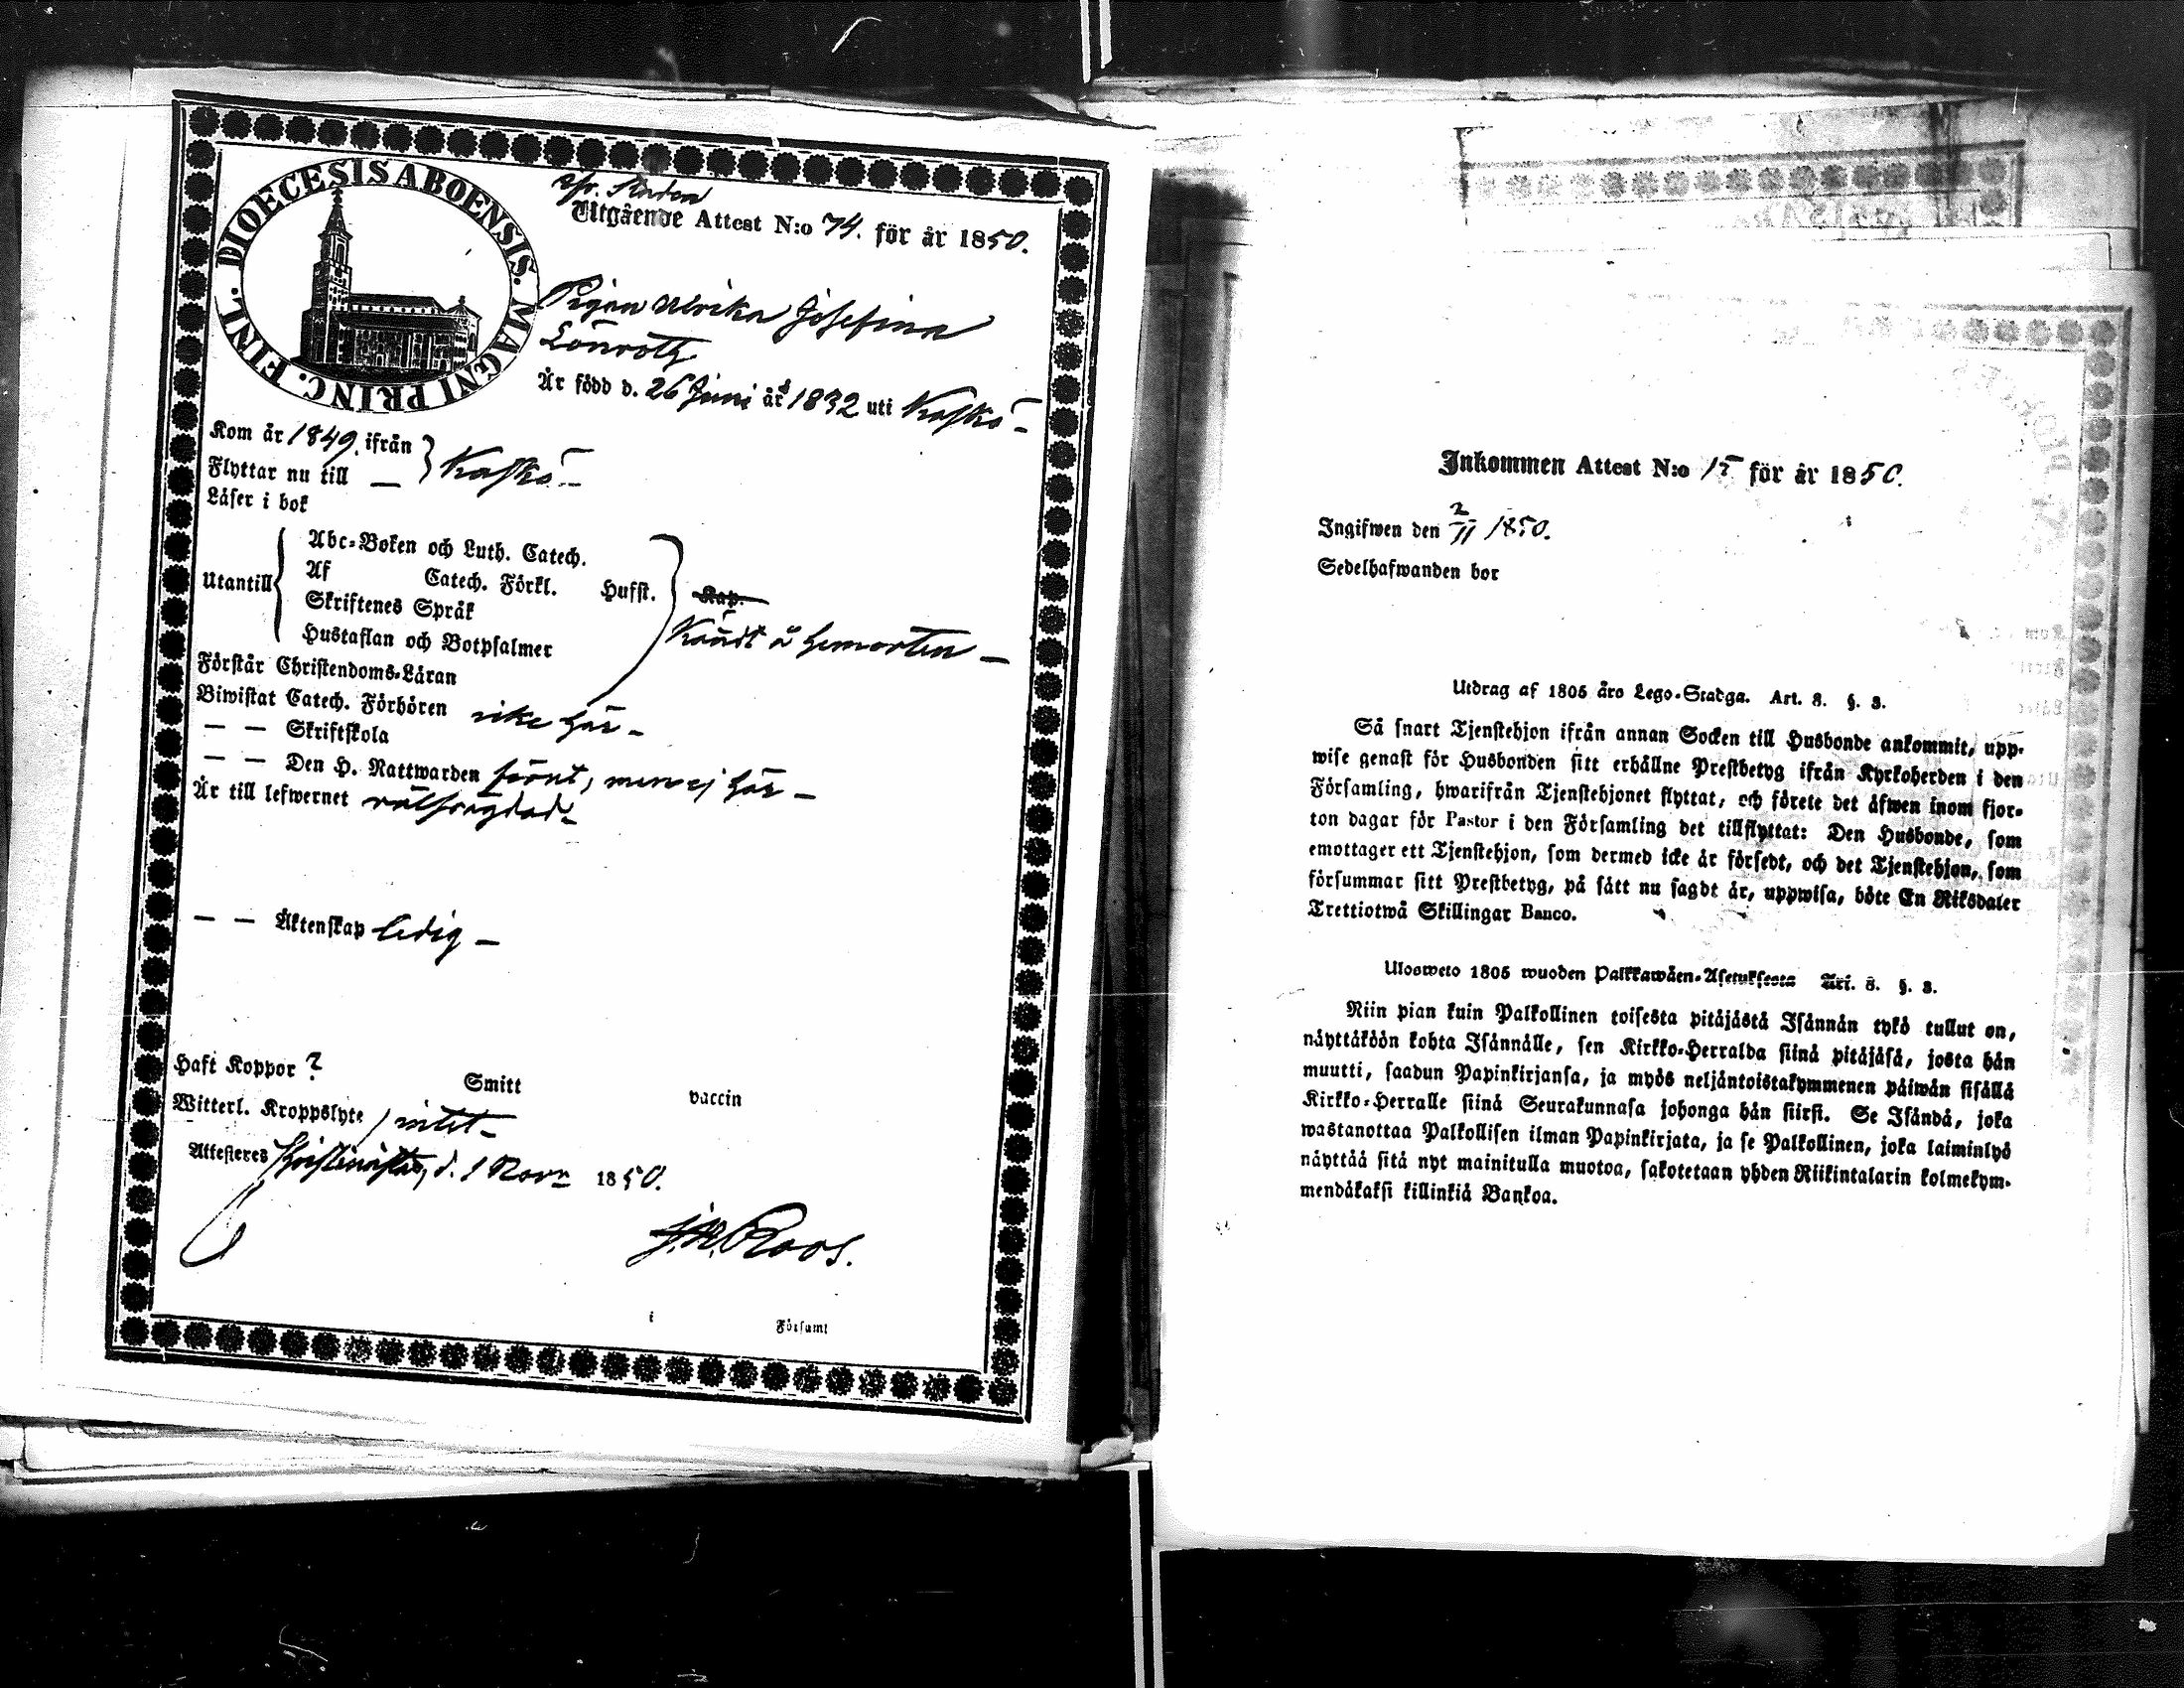 DIOECESIS ABOENSIS. MAGNI PRINC. FINL.
Utgående Attest N:o 74. för år 1850.
Pigan Ulrika Josefina
Lönroth
År född d. 26 Juni år 1832 uti Kaskö
Kom år 1849. ifrån
Flyttar nu till — } Kaskö
Läser i bok
Utantill
Abc-Boken och Luth. Catech.
Af Catech. Förkl. Husst. Kap.
Skriftenes Språk
Hustaflan och Botpsalmer
Kändt å hemorten —
Förstår Christendoms-Läran
Biwistat Catech. Förhören icke här —
— — Skriftskola
— — Den H. Nattwarden förut, men ej här —
År till lefwernet välfrägdad
— — Äktenskap ledig —
Haft Koppor ? Smitt vaccin
Witterl. Kroppslyte intet
Attesteres Christinestad, d. 1 Novr 1850.
J. W. Roos.
i Församl
Inkommen Attest N:o 15 för år 1850.
Ingifwen den 2/11 1850.
Sedelhafwanden bor
Utdrag af 1805 åro Lego-Stadga. Art. 8. §. 3.
Så snart Tjenstehjon ifrån annan Socken till Husbonde ankommit, upp-
wise genast för Husbonden sitt erhållne Prestbetyg ifrån Kyrkoherden i den
Församling, hwarifrån Tjenstehjonet flyttat, och förete det äfwen inom fjor-
ton dagar för Pastor i den Församling det tillflyttat: Den Husbonde, som
emottager ett Tjenstehjon, som dermed icke är försedt, och det Tjenstehjon, som
försummar sitt Prestbetyg, på sätt nu sagdt är, uppwisa, böte En Riksdaler
Trettiotwå Skillingar Banco.
Ulosweto 1805 wuoden Palkkawäen-Asetuksesta Art. 8. §. 3.
Niin pian kuin Palkollinen toisesta pitäjästä Isännän tykö tullut on,
näyttäköön kohta Isännälle, sen Kirkko-Herralda siinä pitäjäsä, josta hän
muutti, saadun Papinkirjansa, ja myös neljäntoistakymmenen päiwän sisällä
Kirkko-Herralle siinä Seurakunnasa johonga hän siirsi. Se Isändä, joka
wastanottaa Palkollisen ilman Papinkirjata, ja se Palkollinen, joka laiminlyö
näyttää sitä nyt mainitulla muotoa, sakotetaan yhden Riikintalarin kolmekym-
mendäkaksi killinkiä Bankoa.